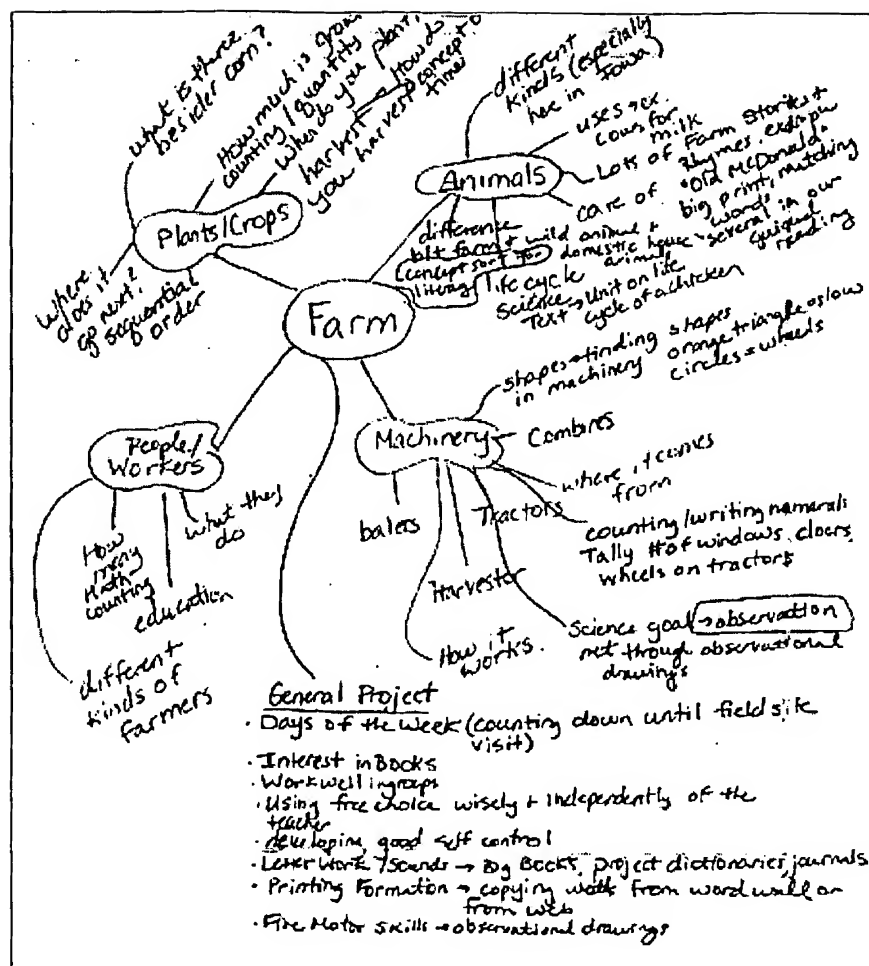 what is there
besides corn?
How much is grown
counting/quantity
When do you plant,
harvest → How do
you harvest concept of
time
Plants/Crops
where
does it
go next?
sequential
order
different
kinds (especially
here in Iowa)
uses → ex.
cows for
milk
Animals
Lots of Farm Stories +
Rhymes. example
"Old McDonald"
big print, matching
words
several in our
guided
reading
care of
difference
btt farm + wild animal +
domestic house
animal
(concept sort for
literacy)
life cycle
Science
Text → Unit on life
cycle of a chicken
Farm
shapes → finding shapes
in machinery orange triangle = slow
circles = wheels
Machinery
Combines
where it comes
from
Tractors
counting/writing numerals
Tally # of windows, doors,
wheels on tractors
balers
Harvestor
How it
works
Science goal → observation
met through observational
drawings
People/
Workers
what they
do
How
many
Math-
counting
education
different
kinds of
farmers
General Project
· Days of the Week (counting down until field site
visit)
· Interest in Books
· Work well in groups
· Using free choice wisely + independently of the
teacher
· developing good self control
· Letter Work/Sounds → Big Books, project dictionaries, journals
· Printing Formation → copying words from word wall or
from web
· Fine Motor skills → observational drawings